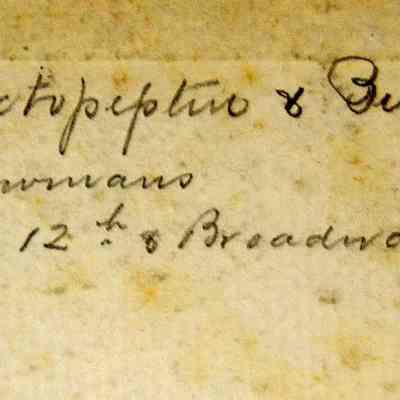 ctopeptine & Be
wmans
12th & Broadwa